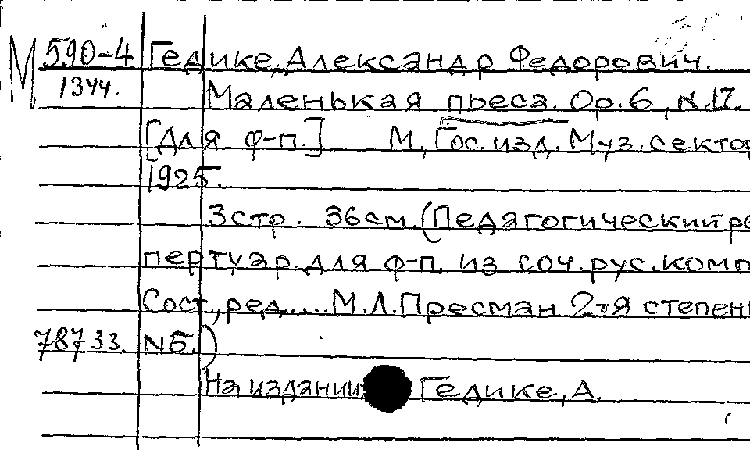 М 590-4 Гедике, Александр Федорович.
1344. Маленькая пьеса. Op. 6, N 17.
[Для ф-п.] М., Гос. изд. Муз. сектор
1925.
3 стр. 36 см. (Педагогический ре
пертуар для ф-п. из соч. рус. комп
Сост., ред.... М.Л. Пресман 2-я степень
78733. N5.)
На издании Гедике, А.